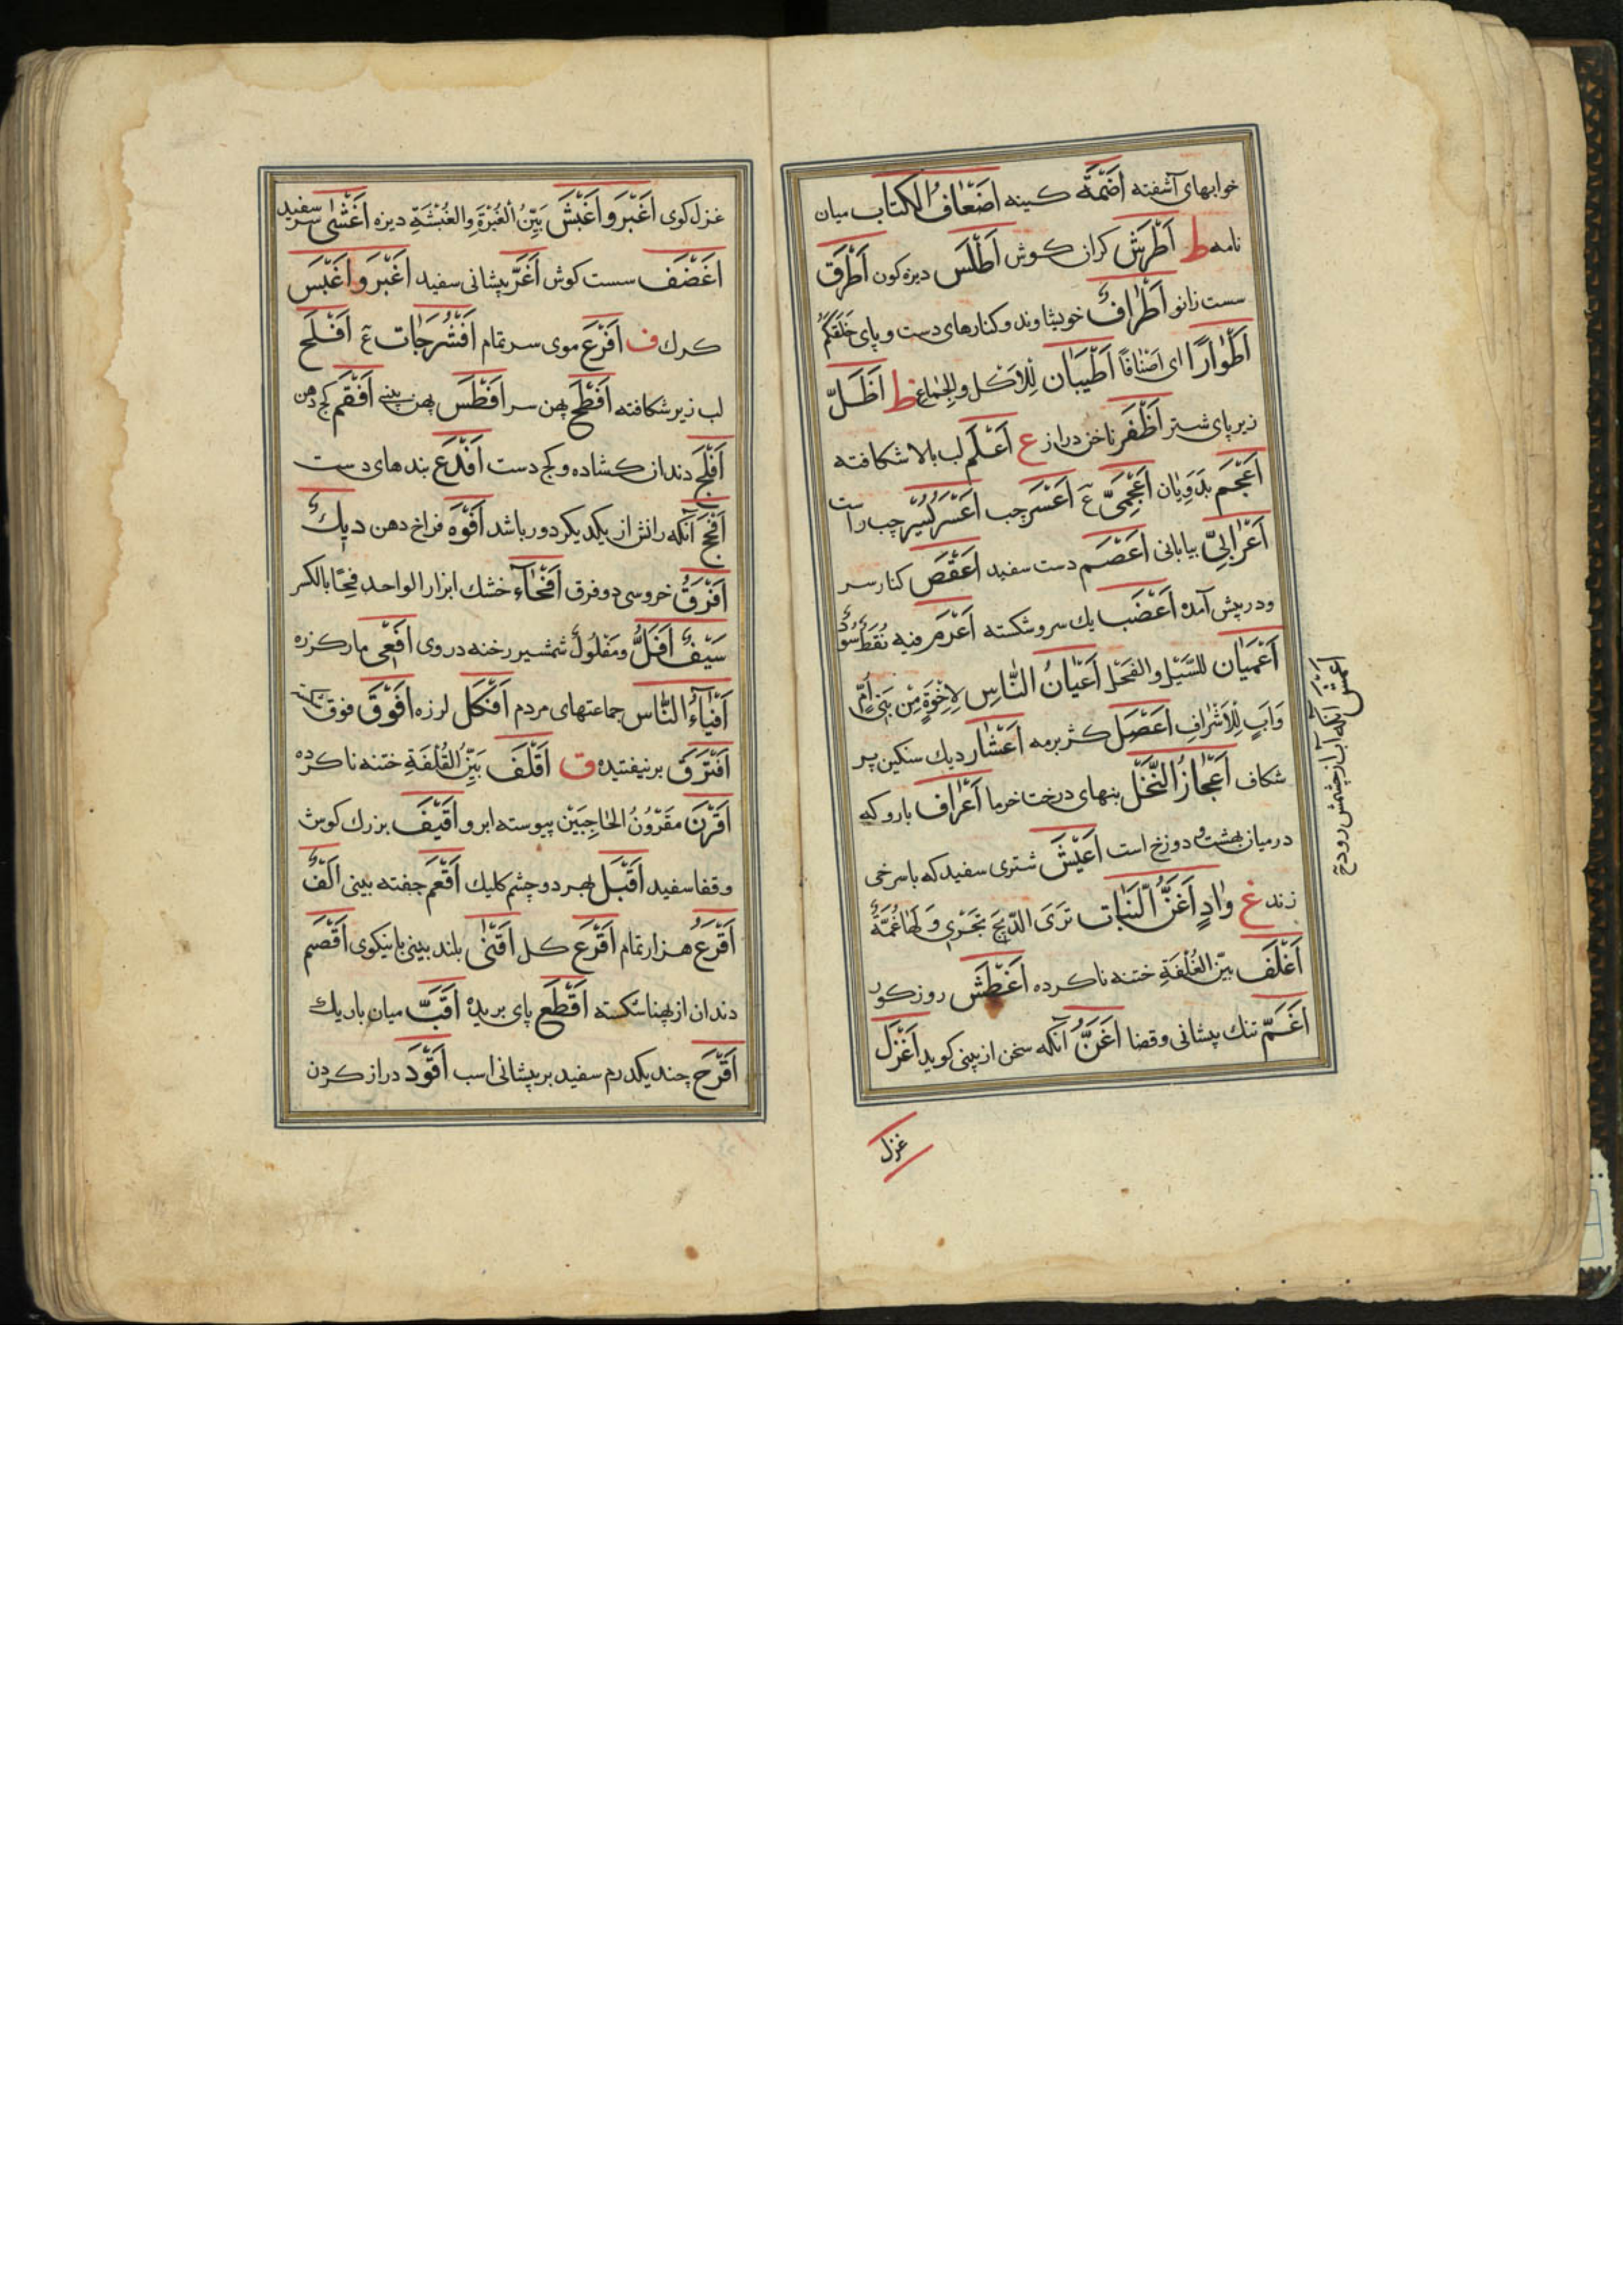 خوابهای آشفته اَضَمَّه کینه اَضْعَافُ الکتاب میان
نامه ط اَطْرَش کران کوش اَطْلَس دیزه کون اَطْرَق
سست زانو اَطْرَافٌ خویشاوند و کنارهای دست و پای خَلَقَکُمْ
اَطْوَارًا ای اَصْنَافًا اَطْیَبَان لِلْاَکْل و الجِمَاع ظ اَظَلّ
زیر پای شتر اَظْفَر ناخن دراز ع اَعْلَم لب بالا شکافته
اَعْجَم بَدَوِیَان اَعْجَمِیّ عَ اَعْسَر چب اَعْسَرُ یَسَر چب راست
اَعْرَابِیّ بیابانی اَعْصَم دست سفید اَعْقَص کنار سر
و در پیش آمده اَعْضَب یك سرو شکسته اَعْرَم فیه نُقَطٌ سُودٌ
اَعْمَیَان للسَّیْل و الفَحْل اَعْیَانُ النَّاسِ لِاِخْوَةٍ مِنْ بَنِی اُمٍّ
وَاَبٍ لِلْاَشْرَافِ اَعْصَل کژ برمه اَعْشَار دیك سنکین پر
شکاف اَعْجَازُ النَّخْل بنهای درخت خرما اَعْرَاف بارو که
در میان بهشت و دوزخ است اَعْیَش شتری سفید که با سرخی
زند غ وَادٍ اَغَنُّ النَّبَات تَرَی الرِّیحَ تَجْرِی وَلَهَا غُمَّةٌ
اَغْلَف بَیِّنُ الغُلْفَةِ ختنه ناکرده اَغْطَش روز کور
اَغَمّ تنك پیشانی و قفا اَغَنُّ آنکه سخن از بینی کوید اَغْزَل
غزل
اَعْمَش آنکه آب از چشمش رود عَ
غزل کوی اَغْبَر وَ اَغْبَش بَیِّنُ الغُبْرَةِ والغُبْشَةِ دیزه اَغْشَی سر سفید
اَغْضَف سست کوش اَغَرّ پیشانی سفید اَغْبَر وَ اَغْبَس
کرك ف اَفْرَع موی سر تمام اَفْشُرَجَات عَ اَفْلَح
لب زیر شکافته اَفْطَح پهن سر اَفْطَس پهن بینی اَفْقَم کج دهن
اَفْلَج دندان کشاده و کج دست اَفْدَع بندهای دست
اَفْحَج آنکه رانش از یکدیکر دور باشد اَفْوَه فراخ دهن دِیكٌ
اَفْرَقُ خروسی دو فرق اَفْحَاء خشك ابزار الواحد فِحًا بالکسر
سَیْفٌ اَفَلُّ و مَفْلُولٌ شمشیر رخنه در روی اَفْعِی مار کزره
اَفْنَاءُ النَّاس جماعتهای مردم اَفْکَل لرزه اَفْوَقَ فوق شکسته
اَفْتَرَق برنیفتیده ق اَقْلَف بَیِّنُ القُلْفَةِ ختنه ناکرده
اَقْرَن مَقْرُونُ الحَاجِبَیْن پیوسته ابرو اَقْیَف بزرك کوش
و قفا سفید اَقْبَل بهر دو چشم کلیك اَقْعَم جفته بینی اَلْفٌ
اَقْرَعُ هزار تمام اَقْرَع کل اَقْنَی بلند بینی با نیکوی اَقْصَم
دندان از پهنا شکسته اَقْطَع پای بریده اَقَبّ میان باریك
اَقْرَح چند یکدرم سفید بر پیشانی اسب اَقْوَد دراز کردن